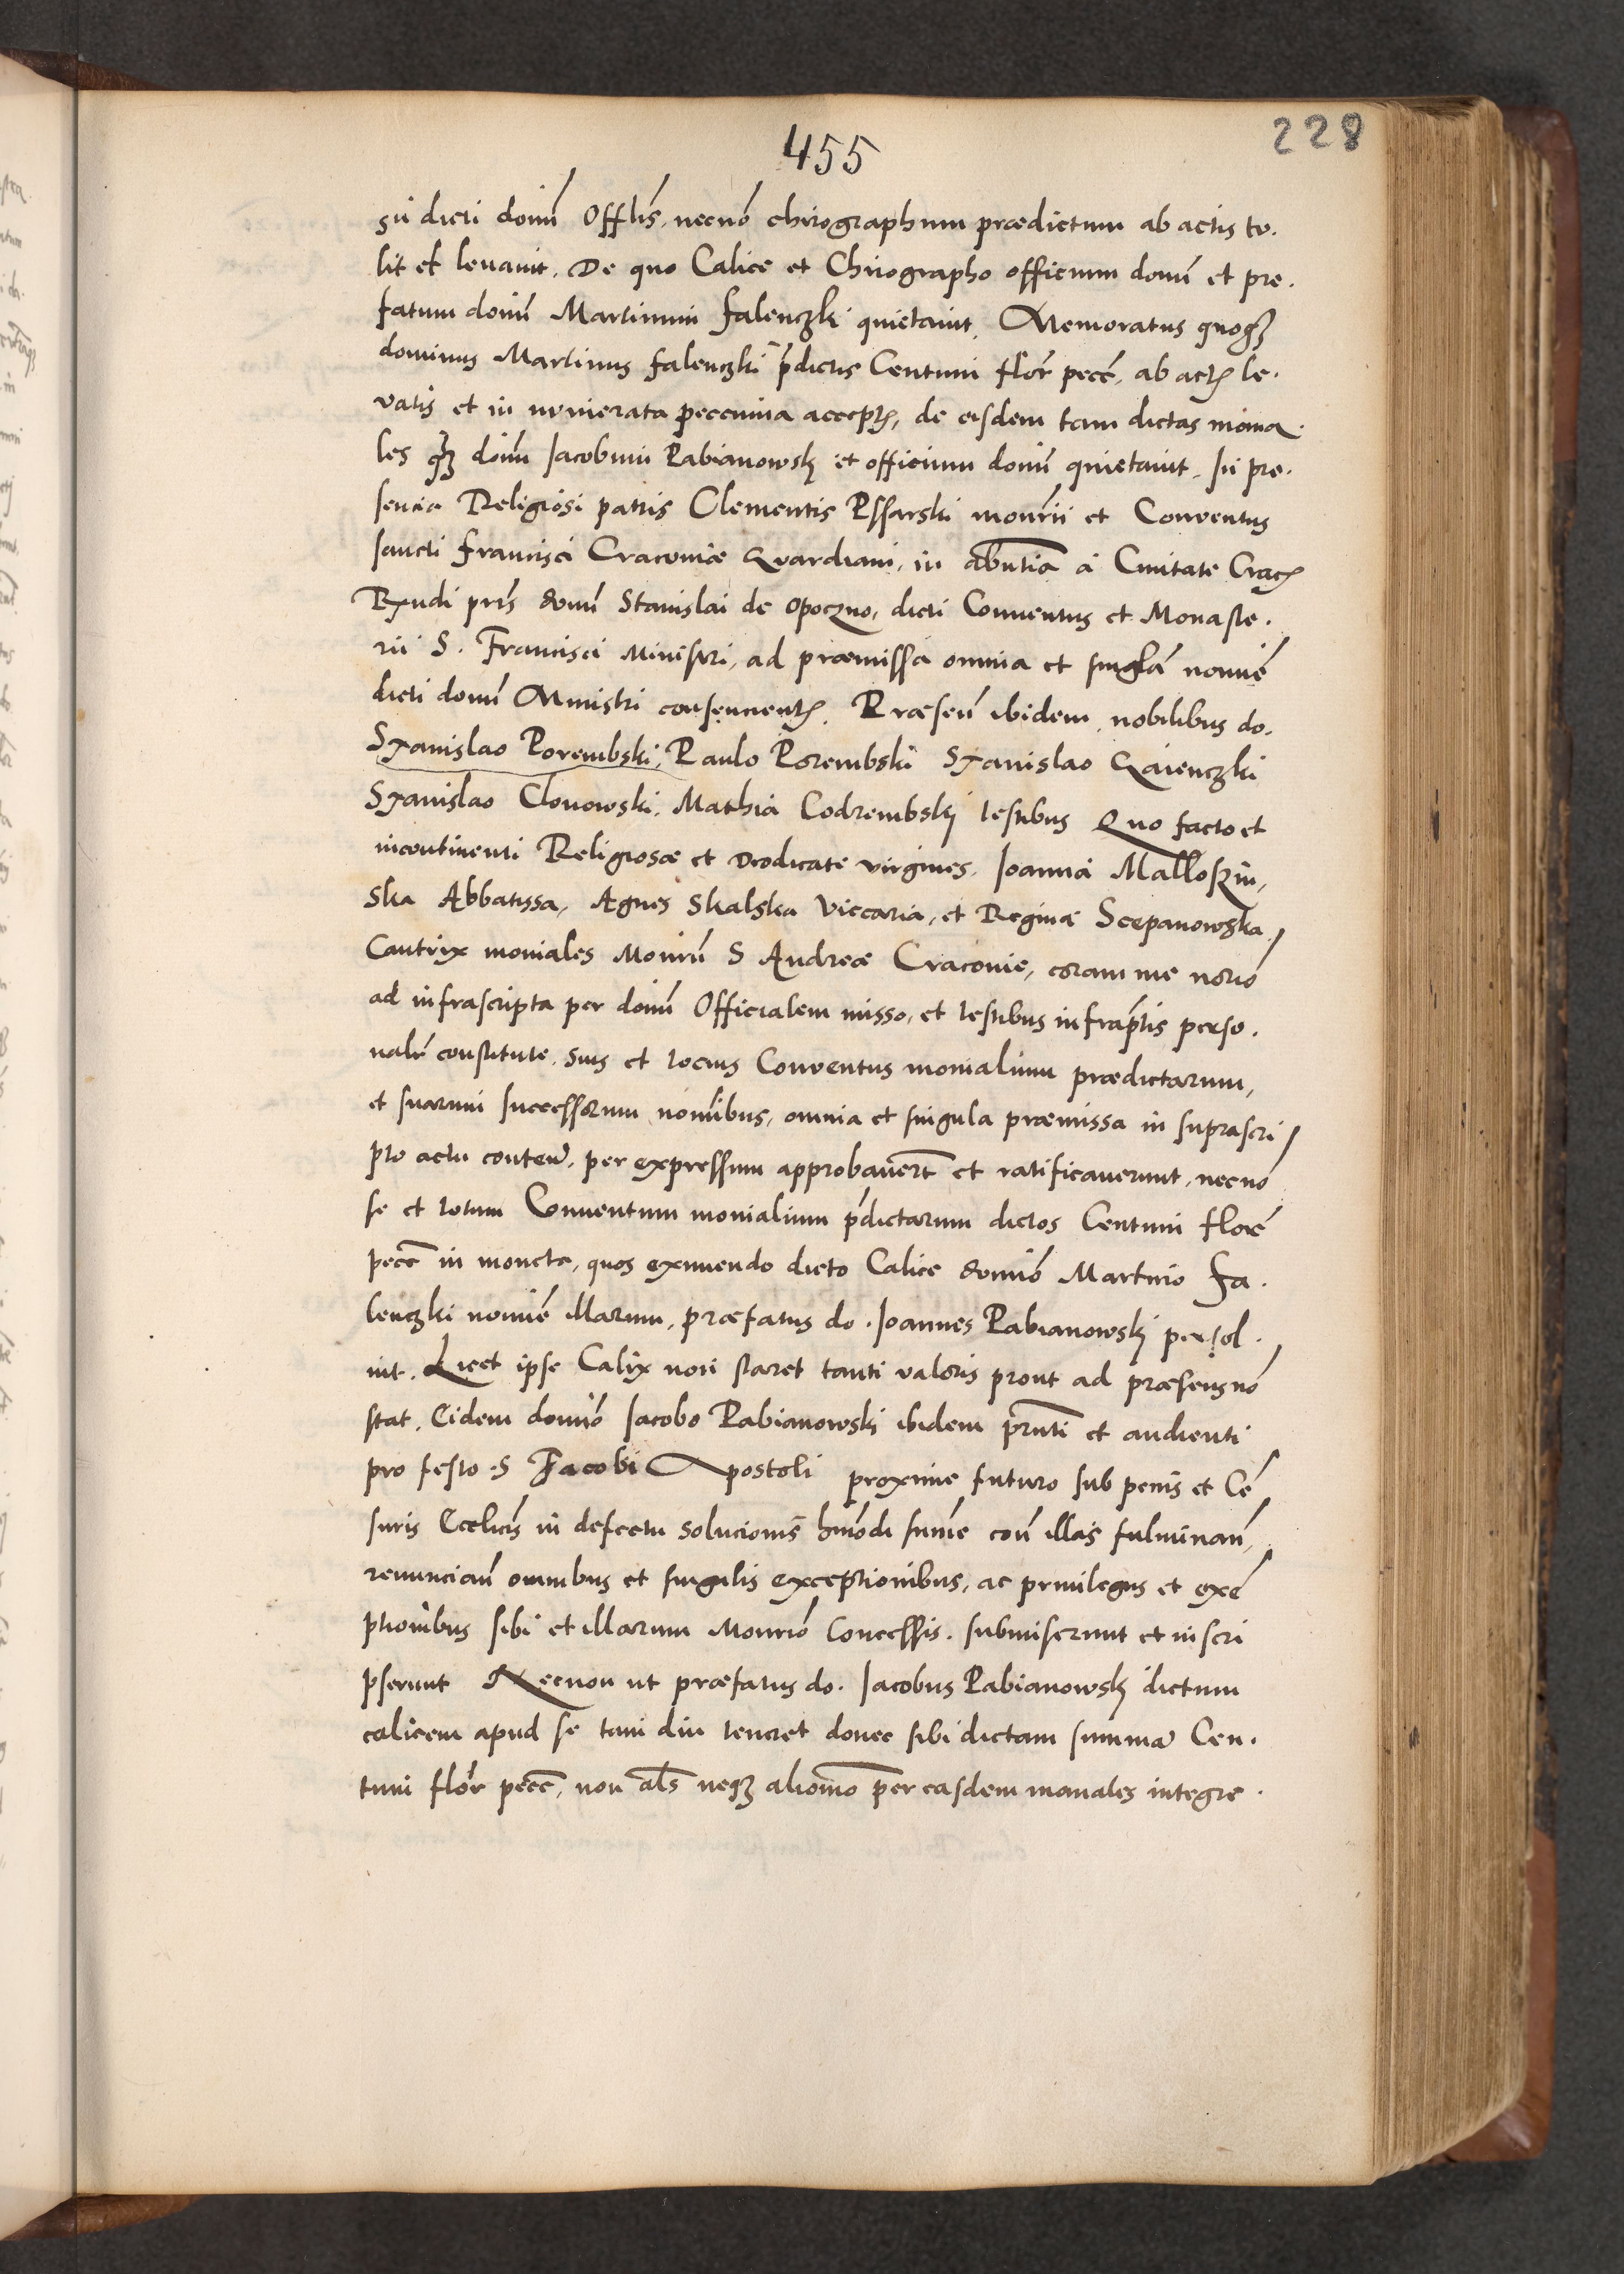 455
228
su dicti domi Offlis, necno chirographum prædictum ab actis to.
lit et levavit. De quo Calice et Chirographo officium domi et pre.
fatum domi Martinum Falenczki quietavit. Memoratus quoqz
dominus Martinus Falenczki pdictis Centum flor pecc, ab actis le.
vatis et in numerata peccunia acceptis, de eisdem tam dictas monia.
les qz domi Iacobum Pabianowsky et officium domi quietavit. In pre.
sencia Religiosi patris Clementis Pssarski monrii et Conventus
sancti Francisci Cracoviæ Gvardiani, in absntia a Civitate Crac
Rxndi pris domi Stanislai de Opoczno, dicti Conventus et Monaste.
rii S. Francisci Ministri, ad præmissa omnia et singla nomie
dicti domi Ministri consencientis. Præsen ibidem nobilibus do.
Stanislao Porembski, Paulo Porembski Stanislao Gaienczki
Stanislao Clonowski, Mathia Codrembskij testibus Quo facto et
incontinenti Religiosæ et Deodicate virgines, Ioanna Malloszin,
ska Abbatissa, Agnes Skalska Viccaria, et Regina Scepanowska
Cantrix moniales Monrii S Andreæ Cracovie, coram me norio
ad infrascripta per domi Officialem misso, et testibus infraptis perso.
nalr constitute. suis et tocius Conventus monialium prædictarum,
et suarum successorum nomibus, omnia et singula præmissa in suprascri
pto actu conten, per expressum approbavert et ratificaverunt, necno
se et totum Conventum monialium pdictarum dictos Centum flore
pecc in moneta, quos eximendo dicto Calice domio Martino Fa.
lenczki nomie illarum, præfatus do. Ioannes Pabianowski persol.
vit. Licet ipse Calix non staret tanti valoris prout ad præsens no
stat. Eidem domio Iacobo Pabianowski ibidem prnti et audienti
pro festo S Jacobi Apostoli proxime futuro sub penis et Ce
suris Ecclicis in defectu solucionis hmodi sume con illas fulminan,
renuncian omnibus et singulis exceptionibus, ac privilegiis et exe
ptionibus sibi et illarum Monrio Concessis. submiserunt et inscri
pserunt Necnon ut præfatus do. Iacobus Pabianowsky dictum
calicem apud se tam diu teneret donec sibi dictam summa Cen.
tum flor pecc, non als neqz aliomo per easdem moniales integre.